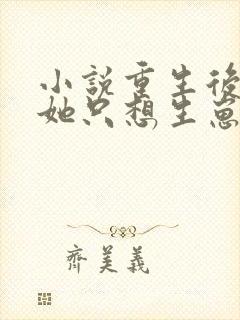 小說重生後
她只想生崽
齊美義